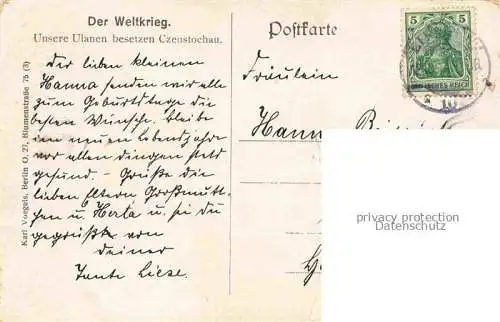 Der Weltkrieg.
Unsere Ulanen besetzen Czenstochau.
Karl Voegels, Berlin O. 27, Blumenstraße 75 (3)
Der lieben kleinen
Hanna senden wir alle
zum Geburtstage die
besten Wünsche. Bleibe
im neuen Lebensjahre
vor allen dingen stets
gesund. – Grüße die
lieben Eltern Großmutt-
chen u. Herta u. sei du
gegrüßt von
deiner
Tante Liese.
Postkarte
5 5
DEUTSCHES REICH
Fräulein
Hanna
privacy protection
Datenschutz